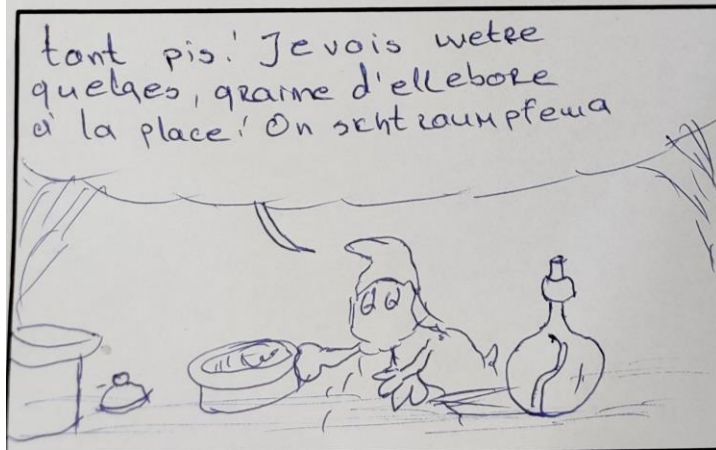 tant pis! Je vais metre
quelqes, graine d'ellebore
à la place! On schtroumpfema